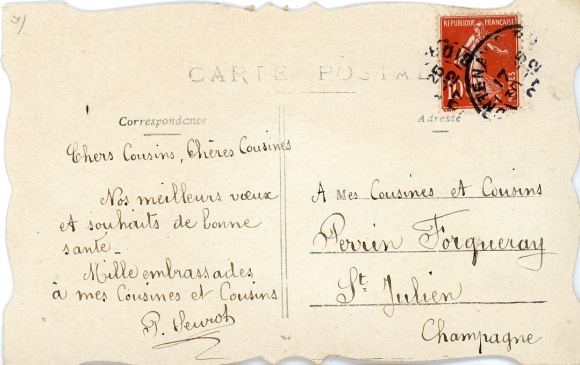 CARTE POSTALE
Correspondance
Adresse
RÉPUBLIQUE FRANÇAISE
10
POSTES
Chers Cousins, Chères Cousines
Nos meilleurs vœux
et souhaits de bonne
santé _
Mille embrassades
à mes Cousines et Cousins
A Mes Cousines et Cousins
Perrin Forqueray
St Julien
Champagne